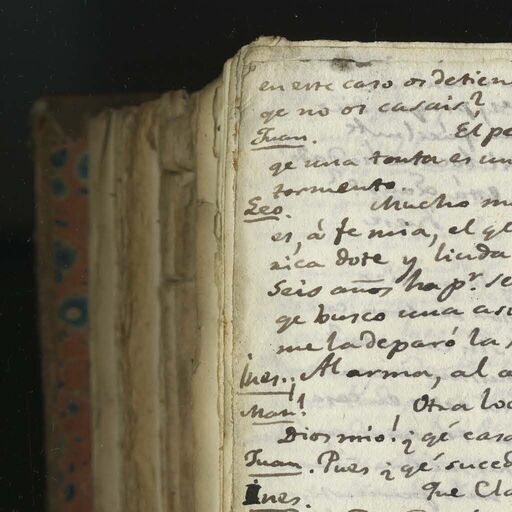 en este caso os detien
qe no os casais?
Juan. El pe
qe una tonta es un
tormento.
Leo. Mucho m
es, á fe mia, el qe
rica dote y linda
Seis años ha pr. se
qe busco una as
me la deparó la s
Ines. Al arma, al a
Man! Otra lo
Dios mio! ¿qé casa
Juan. Pues ¿qé suced
Ines. Que Cla